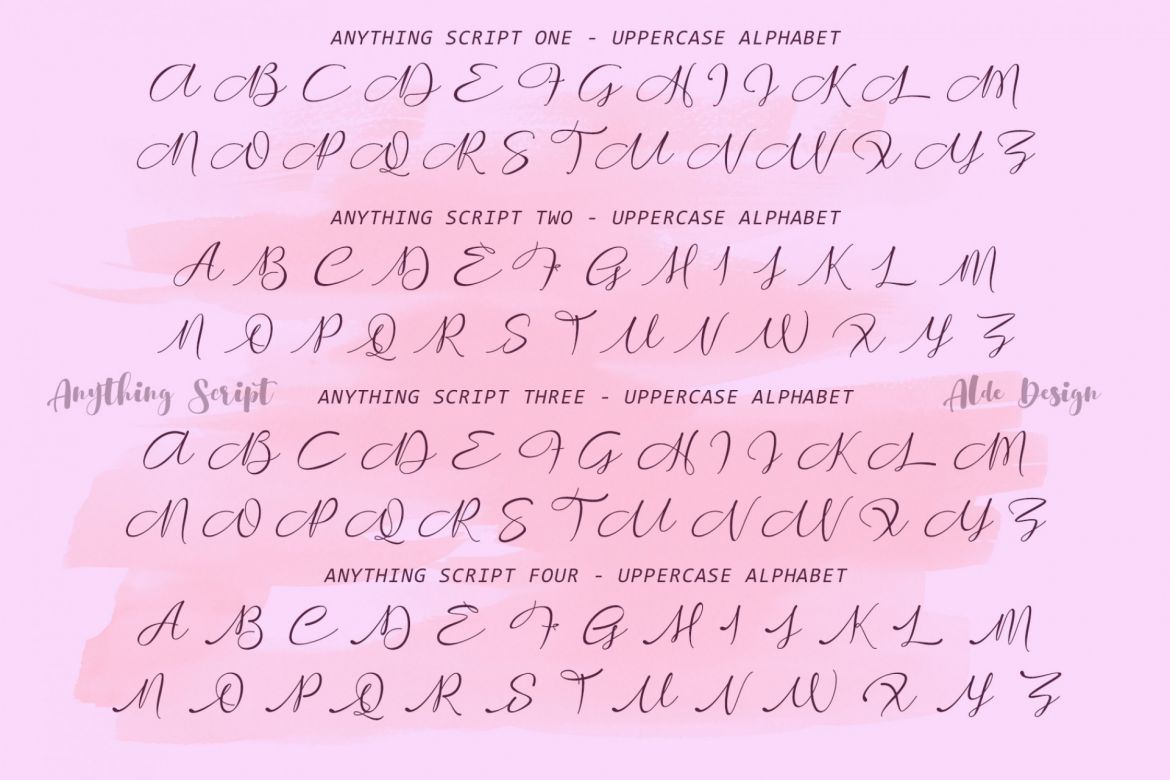 ANYTHING SCRIPT ONE - UPPERCASE ALPHABET
A B C D E F G H I J K L M
N O P Q R S T U V W X Y Z
ANYTHING SCRIPT TWO - UPPERCASE ALPHABET
A B C D E F G H I J K L M
N O P Q R S T U V W X Y Z
Anything Script ANYTHING SCRIPT THREE - UPPERCASE ALPHABET Alde Design
A B C D E F G H I J K L M
N O P Q R S T U V W X Y Z
ANYTHING SCRIPT FOUR - UPPERCASE ALPHABET
A B C D E F G H I J K L M
N O P Q R S T U V W X Y Z